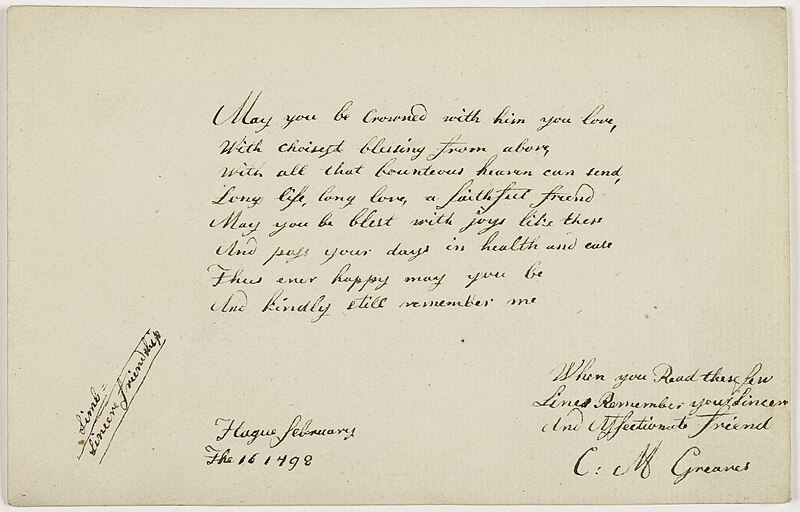 May you be Crowned with him you love,
With choisest blessing from above,
With all that bounteous heaven can send,
Long life, long love, a faithfull friend
May you be blest with joys like these
And pass your days in health and ease
Thus ever happy may you be
And kindly still remember me
When you Read these few
Lines Remember your Sincere
And Affectionate Friend
C: M Greaves
Hague february
The 16 1792
Simb=
Sincere friendship